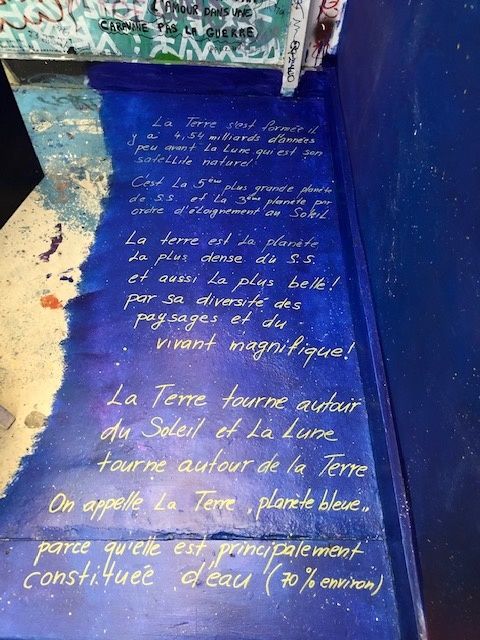 L'AMOUR DANS UNE
CARAVANE PAS LA GUERRE
La Terre s'est formée il
y a 4,54 milliards d'années
peu avant La Lune qui est son
satellite naturel!
C'est La 5ème plus grande planète
de S.S. et La 3ème planète par
ordre d'éloignement au Soleil
La terre est La planète
La plus dense du S.S
et aussi La plus belle!
par sa diversité des
paysages et du
vivant magnifique!
La Terre tourne autour
du Soleil et La Lune
tourne autour de la Terre
On appelle La Terre „planète bleue„
parce qu'elle est principalement
constituée d'eau (70% environ)